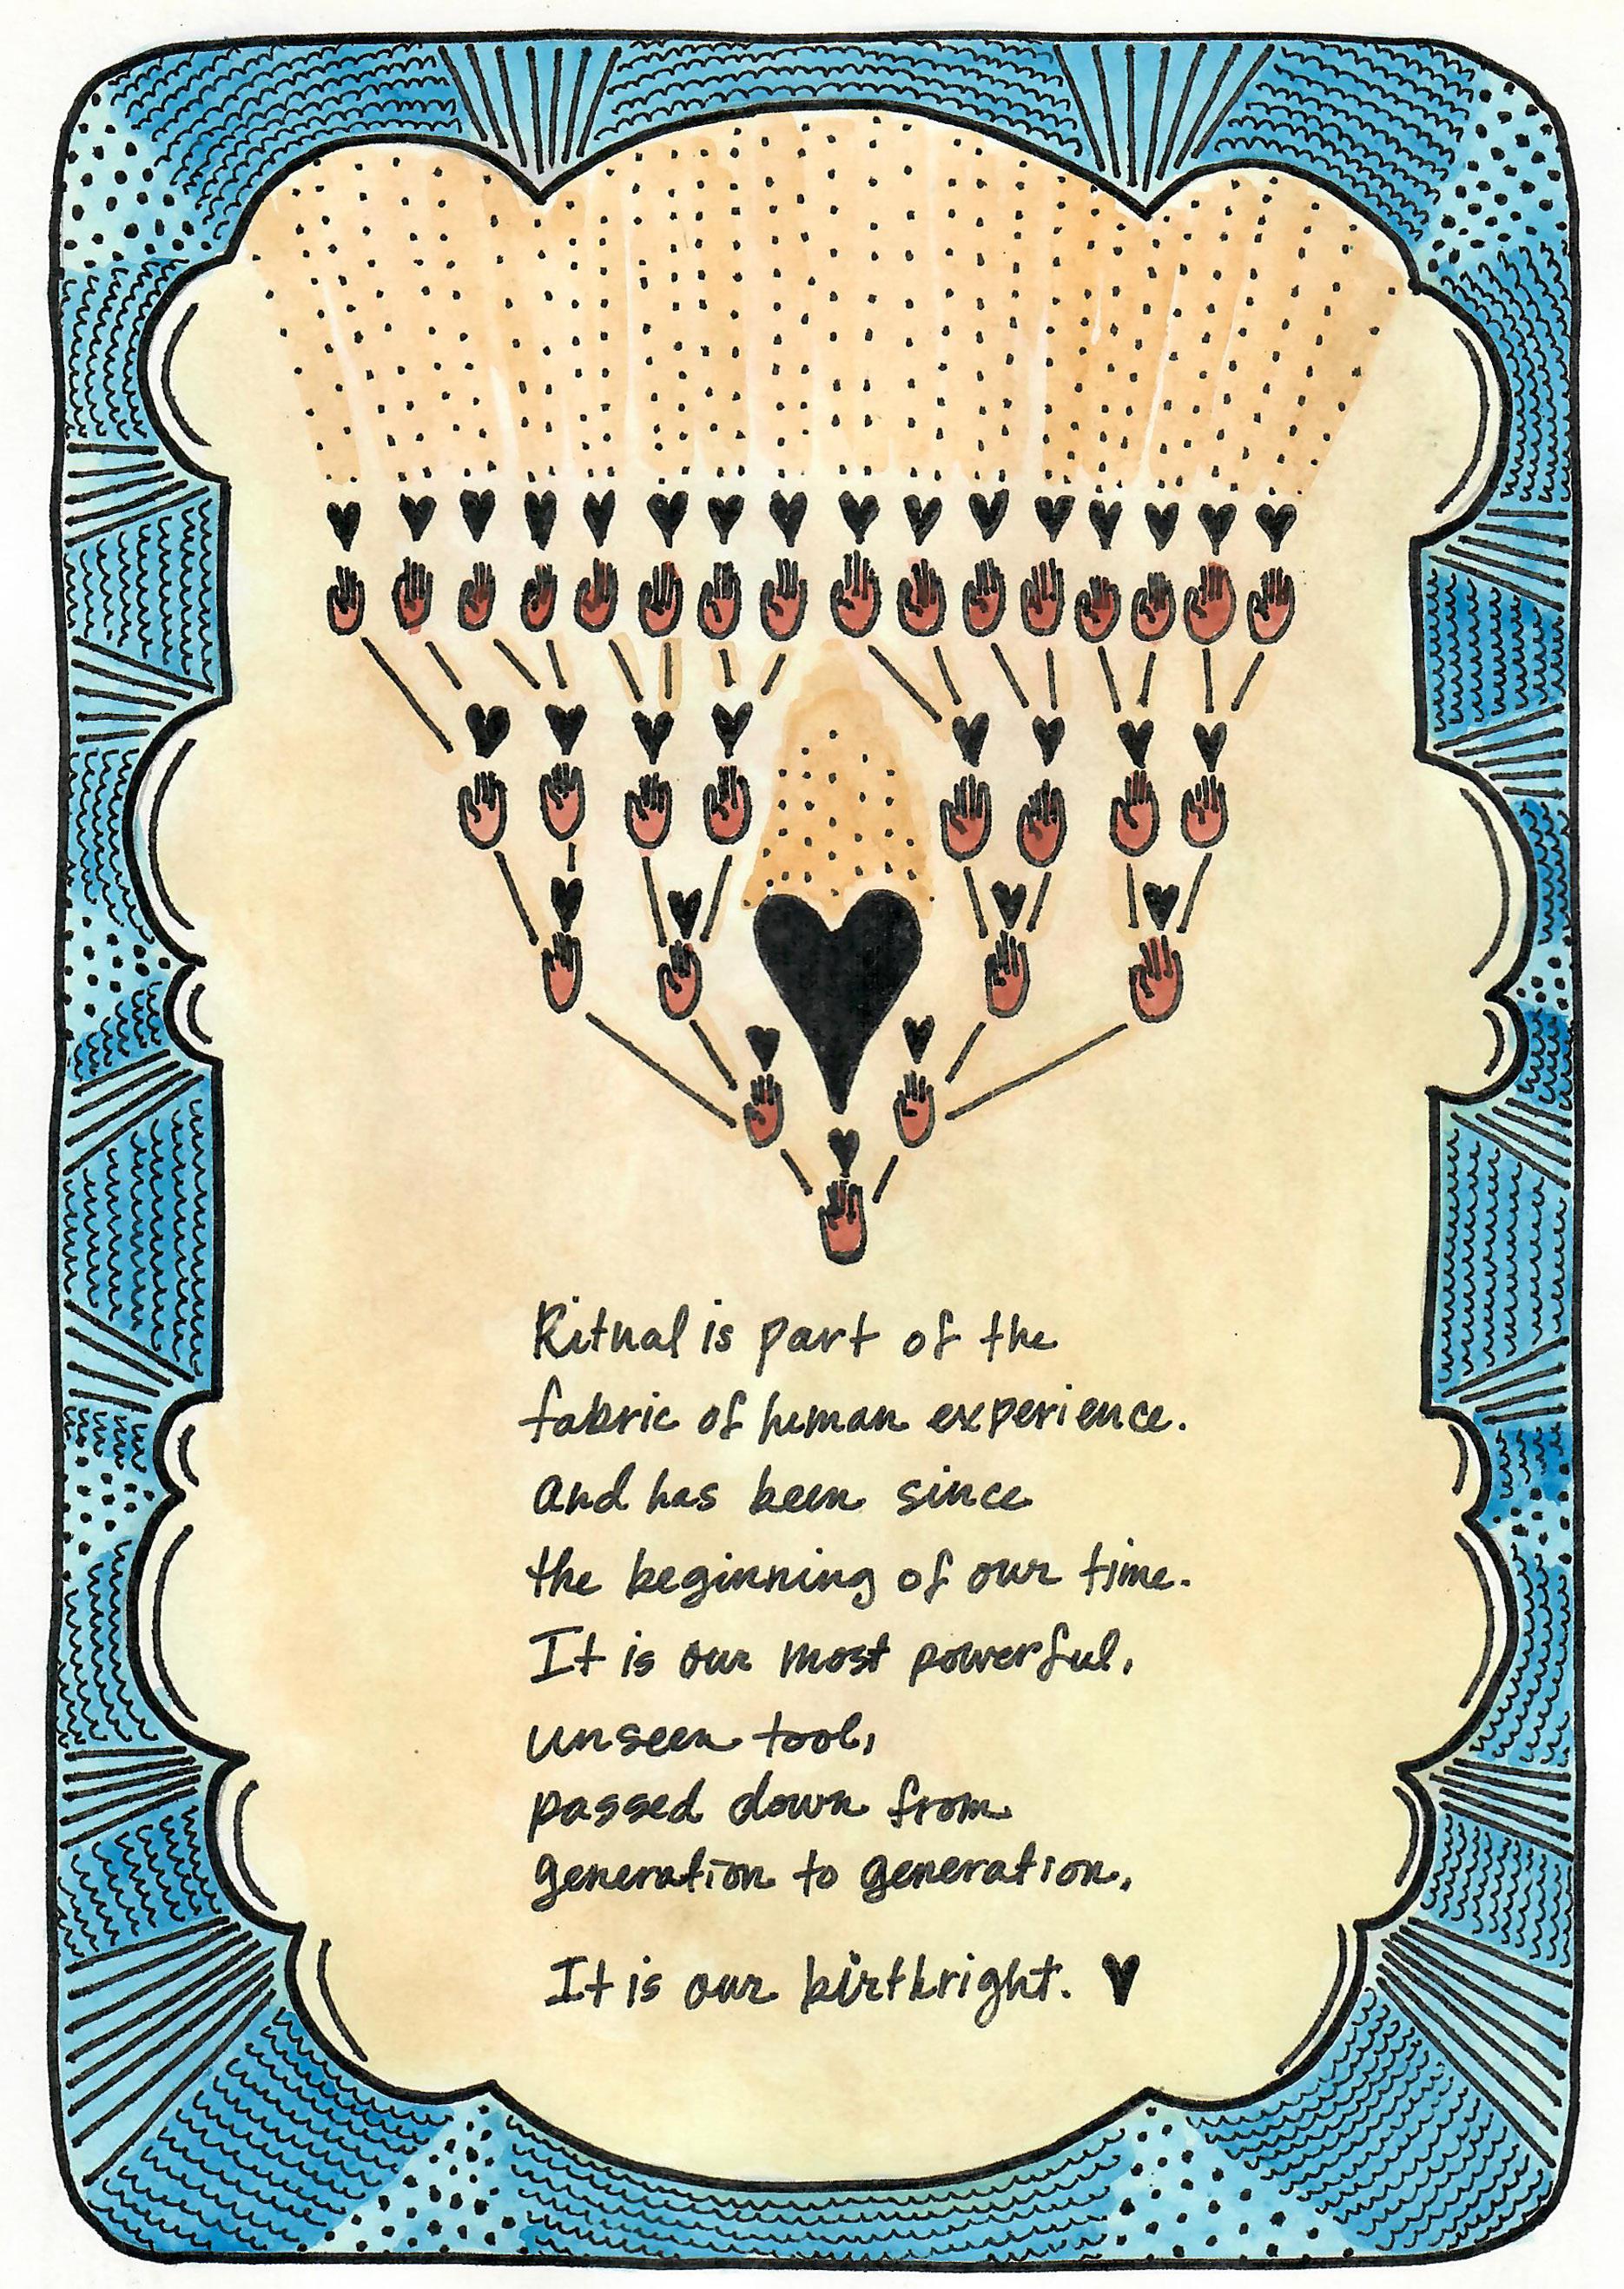 Ritual is part of the
fabric of human experience.
And has been since
the beginning of our time.
It is our most powerful,
unseen tool,
passed down from
generation to generation.
It is our birthright.